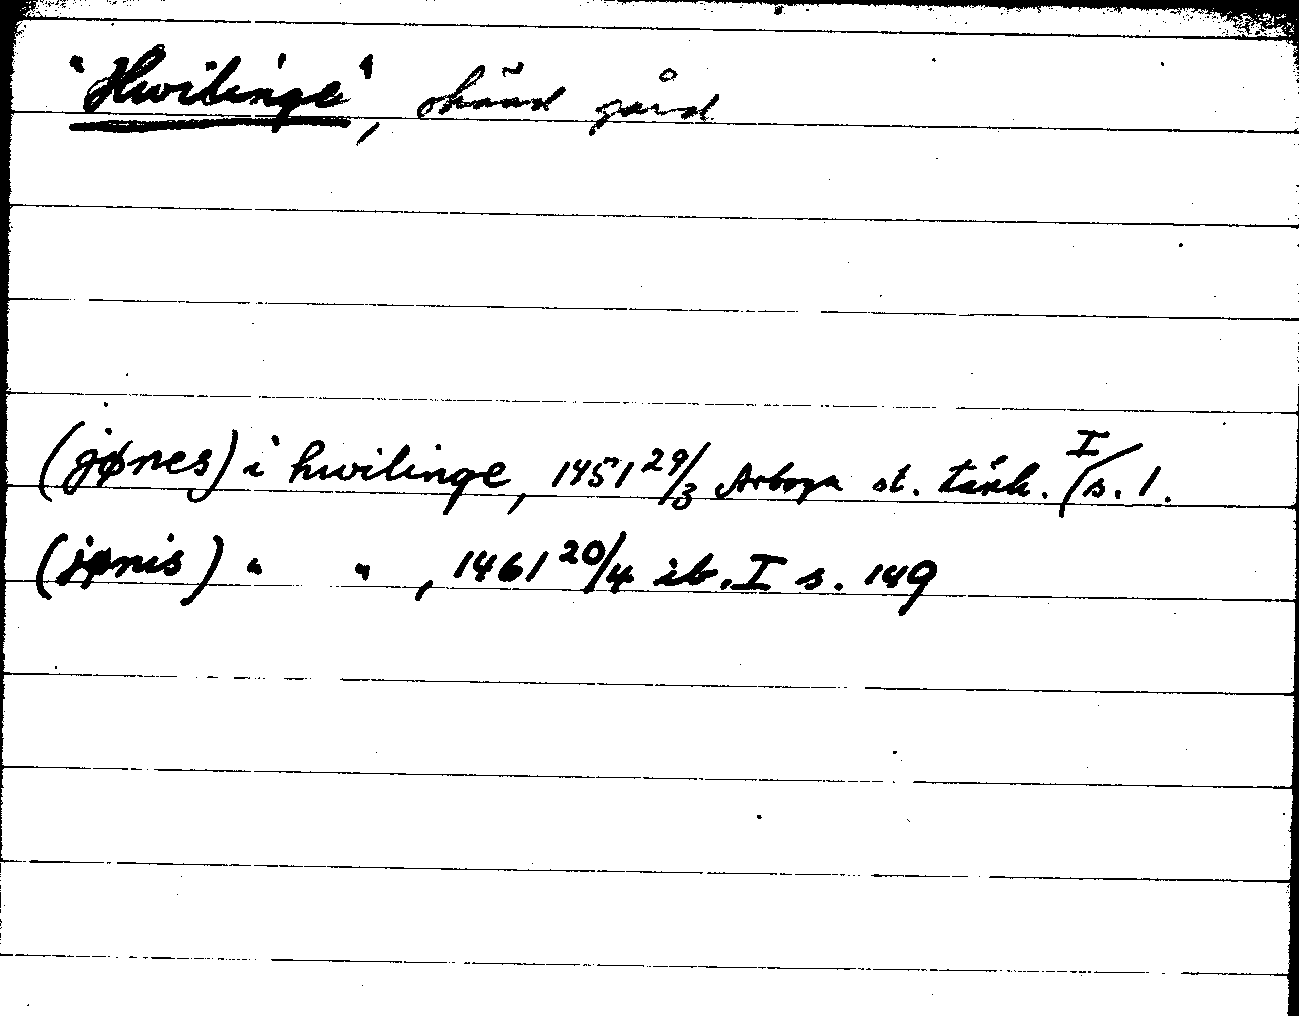 "Hwilinge", okänd gård
(jønes) i hwilinge, 1451 29/3 Arboga st. tänk. I s. 1.
(jønis) " ", 1461 20/4 ib. I s. 149